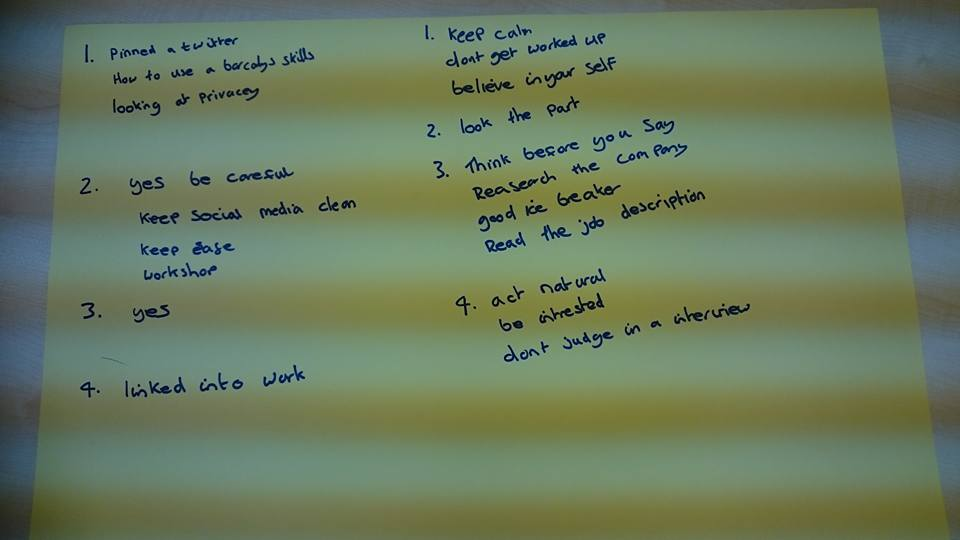 1. Pinned a twitter
How to use a barcalys skills
looking at privacey
2. yes be careful
Keep social media clean
Keep Safe
workshop
3. yes
4. linked into work
1. Keep calm
dont get worked up
believe in your self
2. look the part
3. Think before you say
Reaserch the company
good ice beaker
Read the job description
4. act natural
be intrested
dont judge in a interview